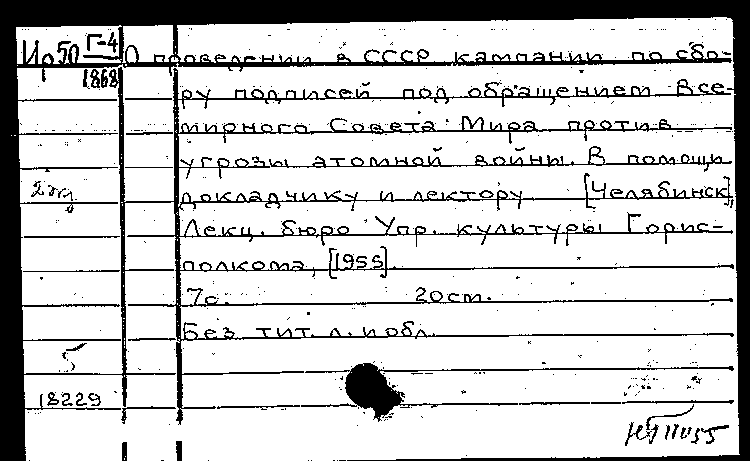 Ир50 Г-4 О проведении в СССР кампании по сбо-
1868
ру подписей под обращением Все-
мирного Совета Мира против
угрозы атомной войны. В помощь
2 экз
докладчику и лектору [Челябинск],
Лекц. бюро Упр. культуры Горис-
полкома, [1955].
7с. 20см.
Без тит. л. и обл.
5
18229